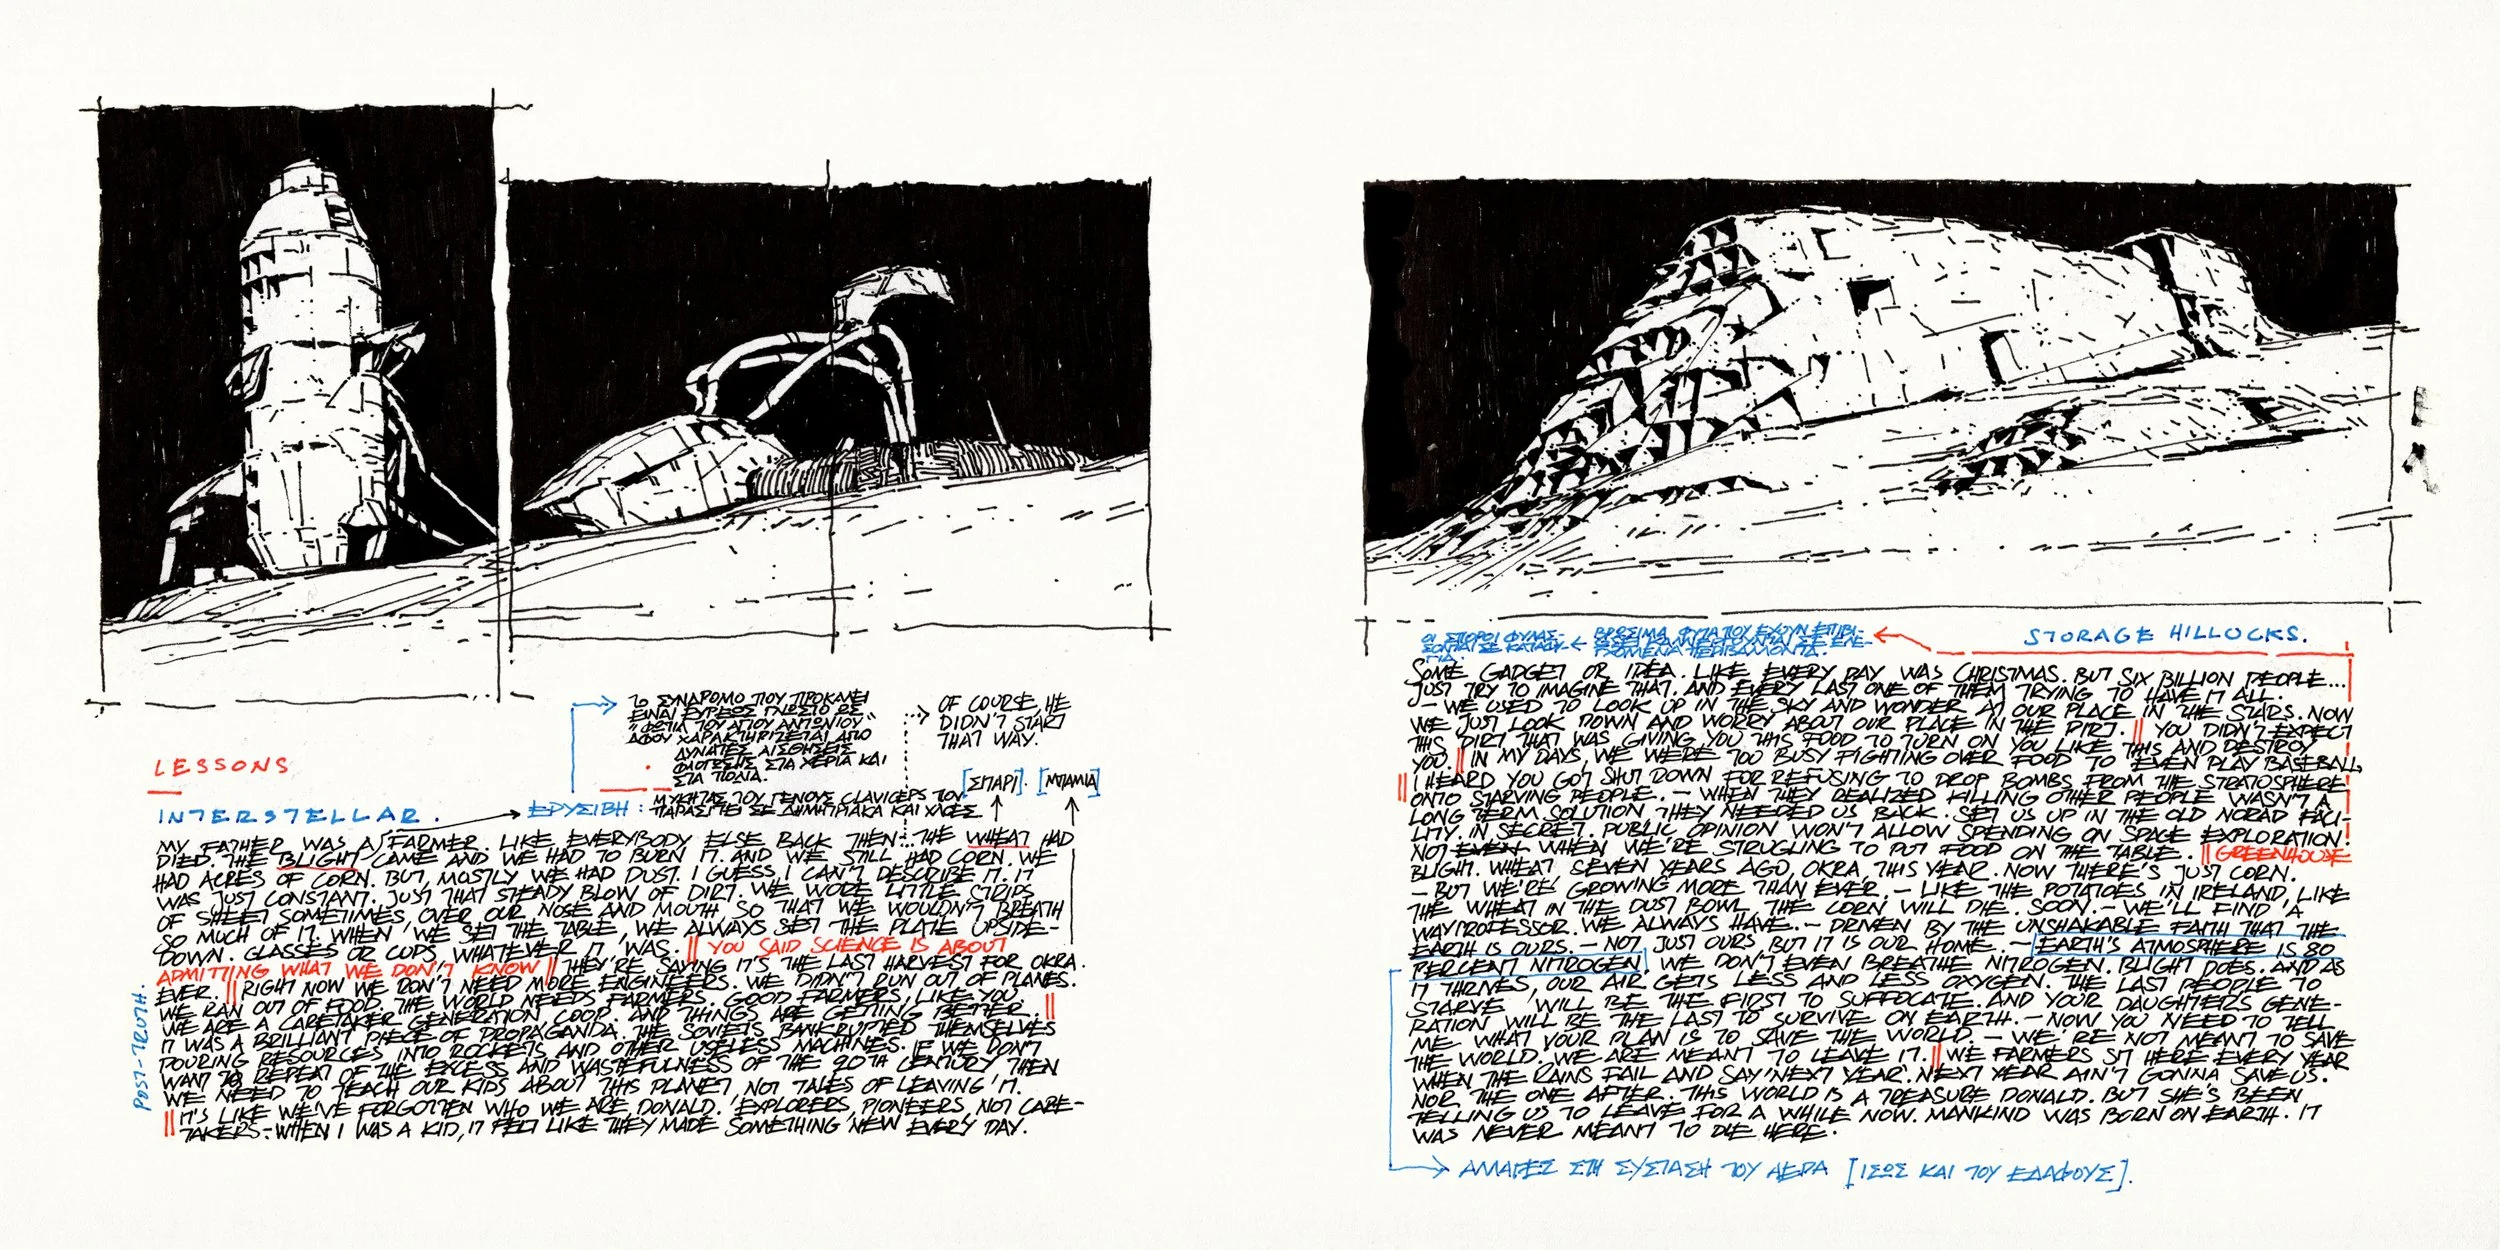 ΤΟ ΣΥΝΔΡΟΜΟ ΠΟΥ ΠΡΟΚΑΛΕΙ
ΕΙΝΑΙ ΕΥΡΕΩΣ ΓΝΩΣΤΟ ΩΣ
"ΦΩΤΙΑ ΤΟΥ ΑΓΙΟΥ ΑΝΤΩΝΙΟΥ"
ΑΦΟΥ ΧΑΡΑΚΤΗΡΙΖΕΤΑΙ ΑΠΟ
ΔΥΝΑΤΕΣ ΑΙΣΘΗΣΕΙΣ
ΦΛΟΓΩΣΗΣ ΣΤΑ ΧΕΡΙΑ ΚΑΙ
ΣΤΑ ΠΟΔΙΑ.
OF COURSE, HE
DIDN'T START
THAT WAY.
LESSONS
[ΣΙΤΑΡΙ]. [ΜΠΑΜΙΑ]
INTERSTELLAR.
ΕΡΥΣΙΒΗ:
ΜΥΚΗΤΑΣ ΤΟΥ ΓΕΝΟΥΣ CLAVICEPS ΠΟΥ
ΠΑΡΑΣΙΤΕΙ ΣΕ ΔΗΜΗΤΡΙΑΚΑ ΚΑΙ ΧΛΟΕΣ
MY FATHER WAS A FARMER. LIKE EVERYBODY ELSE BACK THEN... THE WHEAT HAD
DIED. THE BLIGHT CAME AND WE HAD TO BURN IT. AND WE STILL HAD CORN. WE
HAD ACRES OF CORN. BUT, MOSTLY WE HAD DUST. I GUESS, I CAN'T DESCRIBE IT. IT
WAS JUST CONSTANT. JUST THAT STEADY BLOW OF DIRT. WE WORE LITTLE STRIPS
OF SHEET SOMETIMES, OVER OUR NOSE AND MOUTH SO THAT WE WOULDN'T BREATH
SO MUCH OF IT. WHEN WE SET THE TABLE, WE ALWAYS SET THE PLATE UPSIDE-
DOWN. GLASSES OR CUPS, WHATEVER IT WAS. || YOU SAID SCIENCE IS ABOUT
ADMITTING WHAT WE DON'T KNOW || THEY'RE SAYING IT'S THE LAST HARVEST FOR OKRA.
EVER. || RIGHT NOW WE DON'T NEED MORE ENGINEERS. WE DIDN'T RUN OUT OF PLANES.
WE RAN OUT OF FOOD. THE WORLD NEEDS FARMERS. GOOD FARMERS, LIKE YOU.
WE ARE A CARETAKER GENERATION COOP. AND THINGS ARE GETTING BETTER. ||
IT WAS A BRILLIANT PIECE OF PROPAGANDA. THE SOVIETS BANKRUPTED THEMSELVES
POURING RESOURCES INTO ROCKETS AND OTHER USELESS MACHINES. IF WE DON'T
WANT TO REPEAT OF THE EXCESS AND WASTEFULNESS OF THE 20TH CENTURY THEN
WE NEED TO TEACH OUR KIDS ABOUT THIS PLANET NOT TALES OF LEAVING IT.
|| IT'S LIKE WE'VE FORGOTTEN WHO WE ARE, DONALD. EXPLORERS, PIONEERS, NOT CARE-
TAKERS. - WHEN I WAS A KID, IT FELT LIKE THEY MADE SOMETHING NEW EVERY DAY.
POST-TRUTH.
STORAGE HILLOCKS.
ΟΙ ΣΠΟΡΟΙ ΦΥΛΑΣ-
ΒΡΩΣΙΜΑ ΦΥΤΑ ΠΟΥ ΕΧΟΥΝ ΕΠΙΒΙ-
ΩΣΕΙ ΚΑΛΛΙΕΡΓΟΥΝΤΑΙ ΣΕ ΕΛΕ-
ΓΧΟΜΕΝΑ ΠΕΡΙΒΑΛΛΟΝΤΑ.
SOME GADGET OR IDEA. LIKE EVERY DAY WAS CHRISTMAS. BUT SIX BILLION PEOPLE...
JUST TRY TO IMAGINE THAT. AND EVERY LAST ONE OF THEM TRYING TO HAVE IT ALL.
- WE USED TO LOOK UP IN THE SKY AND WONDER AT OUR PLACE IN THE STARS. NOW
WE JUST LOOK DOWN AND WORRY ABOUT OUR PLACE IN THE DIRT. || YOU DIDN'T EXPECT
THIS DIRT THAT WAS GIVING YOU THIS FOOD TO TURN ON YOU LIKE THIS AND DESTROY
YOU. || IN MY DAYS, WE WERE TOO BUSY FIGHTING OVER FOOD TO EVEN PLAY BASEBALL
|| I HEARD YOU GOT SHUT DOWN FOR REFUSING TO DROP BOMBS FROM THE STRATOSPHERE
ONTO STARVING PEOPLE. - WHEN THEY REALIZED KILLING OTHER PEOPLE WASN'T A
LONG TERM SOLUTION, THEY NEEDED US BACK. SET US UP IN THE OLD NORAD FACI-
LITY. IN SECRET. PUBLIC OPINION WON'T ALLOW SPENDING ON SPACE EXPLORATION.
NOT EVEN WHEN WE'RE STRUGLING TO PUT FOOD ON THE TABLE. || GREENHOUSE
BLIGHT. WHEAT SEVEN YEARS AGO, OKRA, THIS YEAR. NOW THERE'S JUST CORN.
- BUT WE'RE GROWING MORE THAN EVER. - LIKE THE POTATOES IN IRELAND, LIKE
THE WHEAT IN THE DUST BOWL, THE CORN WILL DIE. SOON. - WE'LL FIND A
WAY PROFESSOR. WE ALWAYS HAVE. - DRIVEN BY THE UNSHAKABLE FAITH THAT THE
EARTH IS OURS. - NOT JUST OURS, BUT IT IS OUR HOME. - EARTH'S ATMOSPHERE IS 80
PERCENT NITROGEN. WE DON'T EVEN BREATHE NITROGEN. BLIGHT DOES. AND AS
IT THRIVES, OUR AIR GETS LESS AND LESS OXYGEN. THE LAST PEOPLE TO
STARVE WILL BE THE FIRST TO SUFFOCATE. AND YOUR DAUGHTERS GENE-
RATION WILL BE THE LAST TO SURVIVE ON EARTH. - NOW YOU NEED TO TELL
ME WHAT YOUR PLAN IS TO SAVE THE WORLD. - WE'RE NOT MEANT TO SAVE
THE WORLD. WE ARE MEANT TO LEAVE IT. || WE FARMERS SIT HERE EVERY YEAR
WHEN THE RAINS FAIL AND SAY 'NEXT YEAR'. NEXT YEAR AIN'T GONNA SAVE US.
NOR THE ONE AFTER. THIS WORLD IS A TREASURE DONALD. BUT SHE'S BEEN
TELLING US TO LEAVE FOR A WHILE NOW. MANKIND WAS BORN ON EARTH. IT
WAS NEVER MEANT TO DIE HERE.
ΑΛΛΑΓΕΣ ΣΤΗ ΣΥΣΤΑΣΗ ΤΟΥ ΑΕΡΑ [ΙΣΩΣ ΚΑΙ ΤΟΥ ΕΔΑΦΟΥΣ].